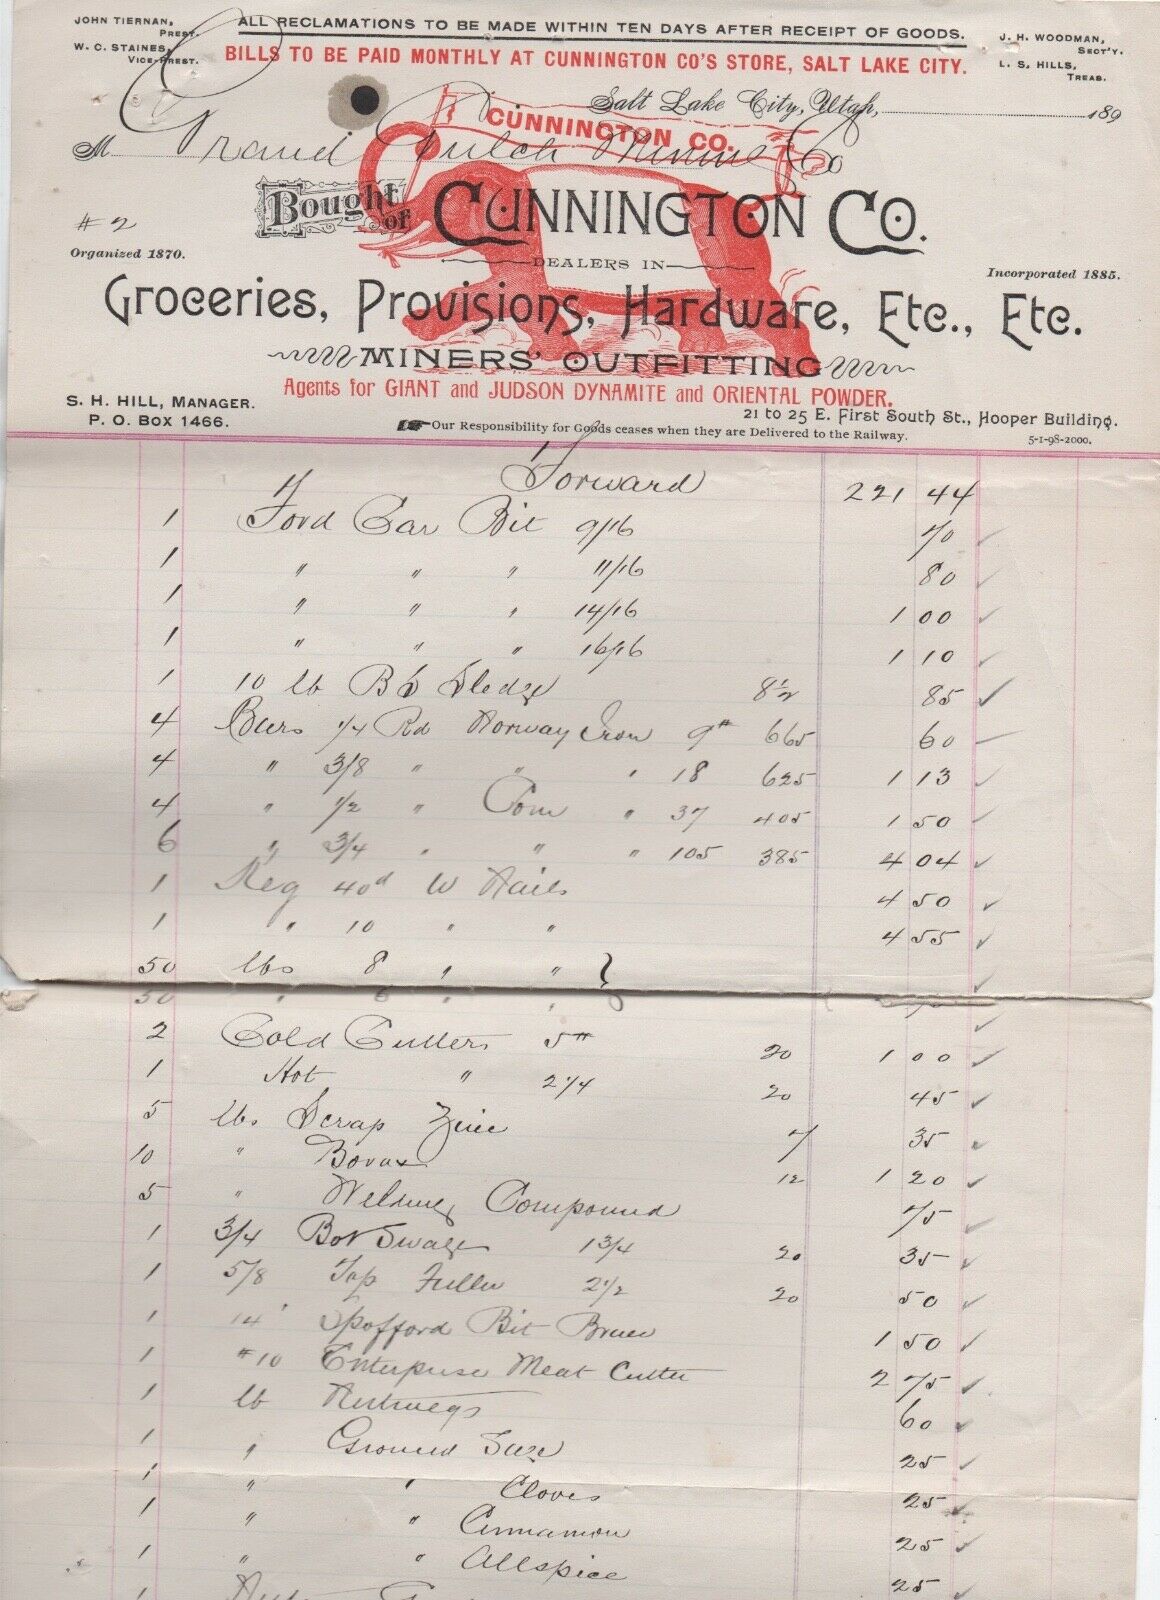 JOHN TIERNAN, PREST.
W. C. STAINES, VICE-PREST.
ALL RECLAMATIONS TO BE MADE WITHIN TEN DAYS AFTER RECEIPT OF GOODS.
J. H. WOODMAN, SECT'Y.
L. S. HILLS, TREAS.
BILLS TO BE PAID MONTHLY AT CUNNINGTON CO'S STORE, SALT LAKE CITY.
Salt Lake City, Utah, 189
CUNNINGTON CO.
M Grand Gulch Mining Co
Bought of CUNNINGTON CO.
# 2
Organized 1870.
DEALERS IN
Incorporated 1885.
Groceries, Provisions, Hardware, Etc., Etc.
MINERS' OUTFITTING
Agents for GIANT and JUDSON DYNAMITE and ORIENTAL POWDER.
S. H. HILL, MANAGER.
P. O. BOX 1466.
21 to 25 E. First South St., Hooper Building.
Our Responsibility for Goods ceases when they are Delivered to the Railway.
5-1-98-2000.
Forward 221 44
1 Ford Car Bit 9/16 70
1 " " " 11/16 80
1 " " " 14/16 1 00
1 " " " 16/16 1 10
1 10 lb BS Sledge 8 1/2 85
4 Bars 1/4 Rd Norway Iron 9# 665 60
4 " 3/8 " " " 18 625 1 13
4 " 1/2 " Com " 37 405 1 50
6 " 3/4 " " " 105 385 4 04
1 Keg 40d W Nails 4 50
1 " 10 " " 4 55
50 lbs 8 " " }
50 " 6 " "
2 Cold Cutters 5# 20 1 00
1 Hot " 2 1/4 20 45
5 lbs Scrap Zinc 7 35
10 " Borax 12 1 20
5 " Welding Compound 75
1 3/4 Bot Swage 1 3/4 20 35
1 5/8 Top Fuller 2 1/2 20 50
1 14" Spofford Bit Brace 1 50
1 #10 Enterprise Meat Cutter 2 75
1 lb Nutmegs 60
1 " Ground Sage 25
1 " " Cloves 25
1 " " Cinnamon 25
1 " " Allspice 25
1